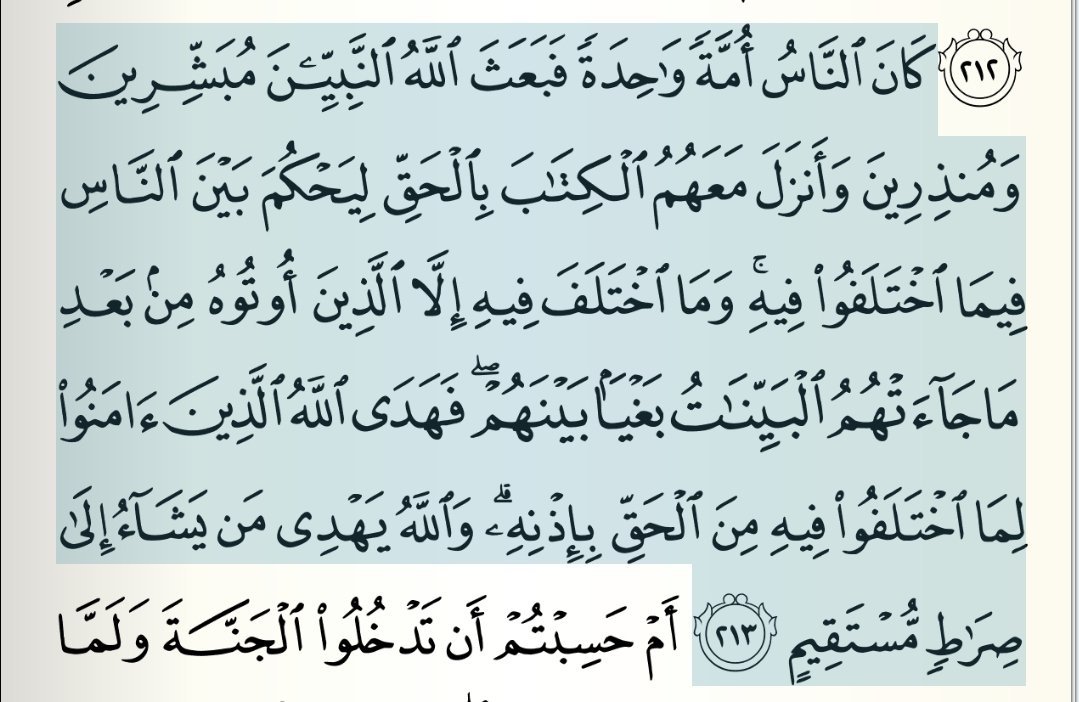 ٢١٢ كَانَ ٱلنَّاسُ أُمَّةٗ وَٰحِدَةٗ فَبَعَثَ ٱللَّهُ ٱلنَّبِيِّـۧنَ مُبَشِّرِينَ
وَمُنذِرِينَ وَأَنزَلَ مَعَهُمُ ٱلۡكِتَٰبَ بِٱلۡحَقِّ لِيَحۡكُمَ بَيۡنَ ٱلنَّاسِ
فِيمَا ٱخۡتَلَفُواْ فِيهِۚ وَمَا ٱخۡتَلَفَ فِيهِ إِلَّا ٱلَّذِينَ أُوتُوهُ مِنۢ بَعۡدِ
مَا جَآءَتۡهُمُ ٱلۡبَيِّنَٰتُ بَغۡيَۢا بَيۡنَهُمۡۖ فَهَدَى ٱللَّهُ ٱلَّذِينَ ءَامَنُواْ
لِمَا ٱخۡتَلَفُواْ فِيهِ مِنَ ٱلۡحَقِّ بِإِذۡنِهِۦۗ وَٱللَّهُ يَهۡدِي مَن يَشَآءُ إِلَىٰ
صِرَٰطٖ مُّسۡتَقِيمٍ ٢١٣ أَمۡ حَسِبۡتُمۡ أَن تَدۡخُلُواْ ٱلۡجَنَّةَ وَلَمَّا